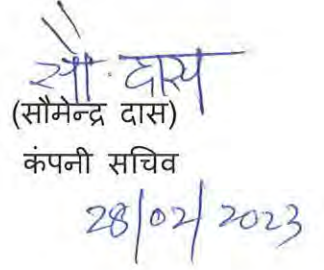 सौ. दास
(सौमेन्द्र दास)
कंपनी सचिव
28/02/2023